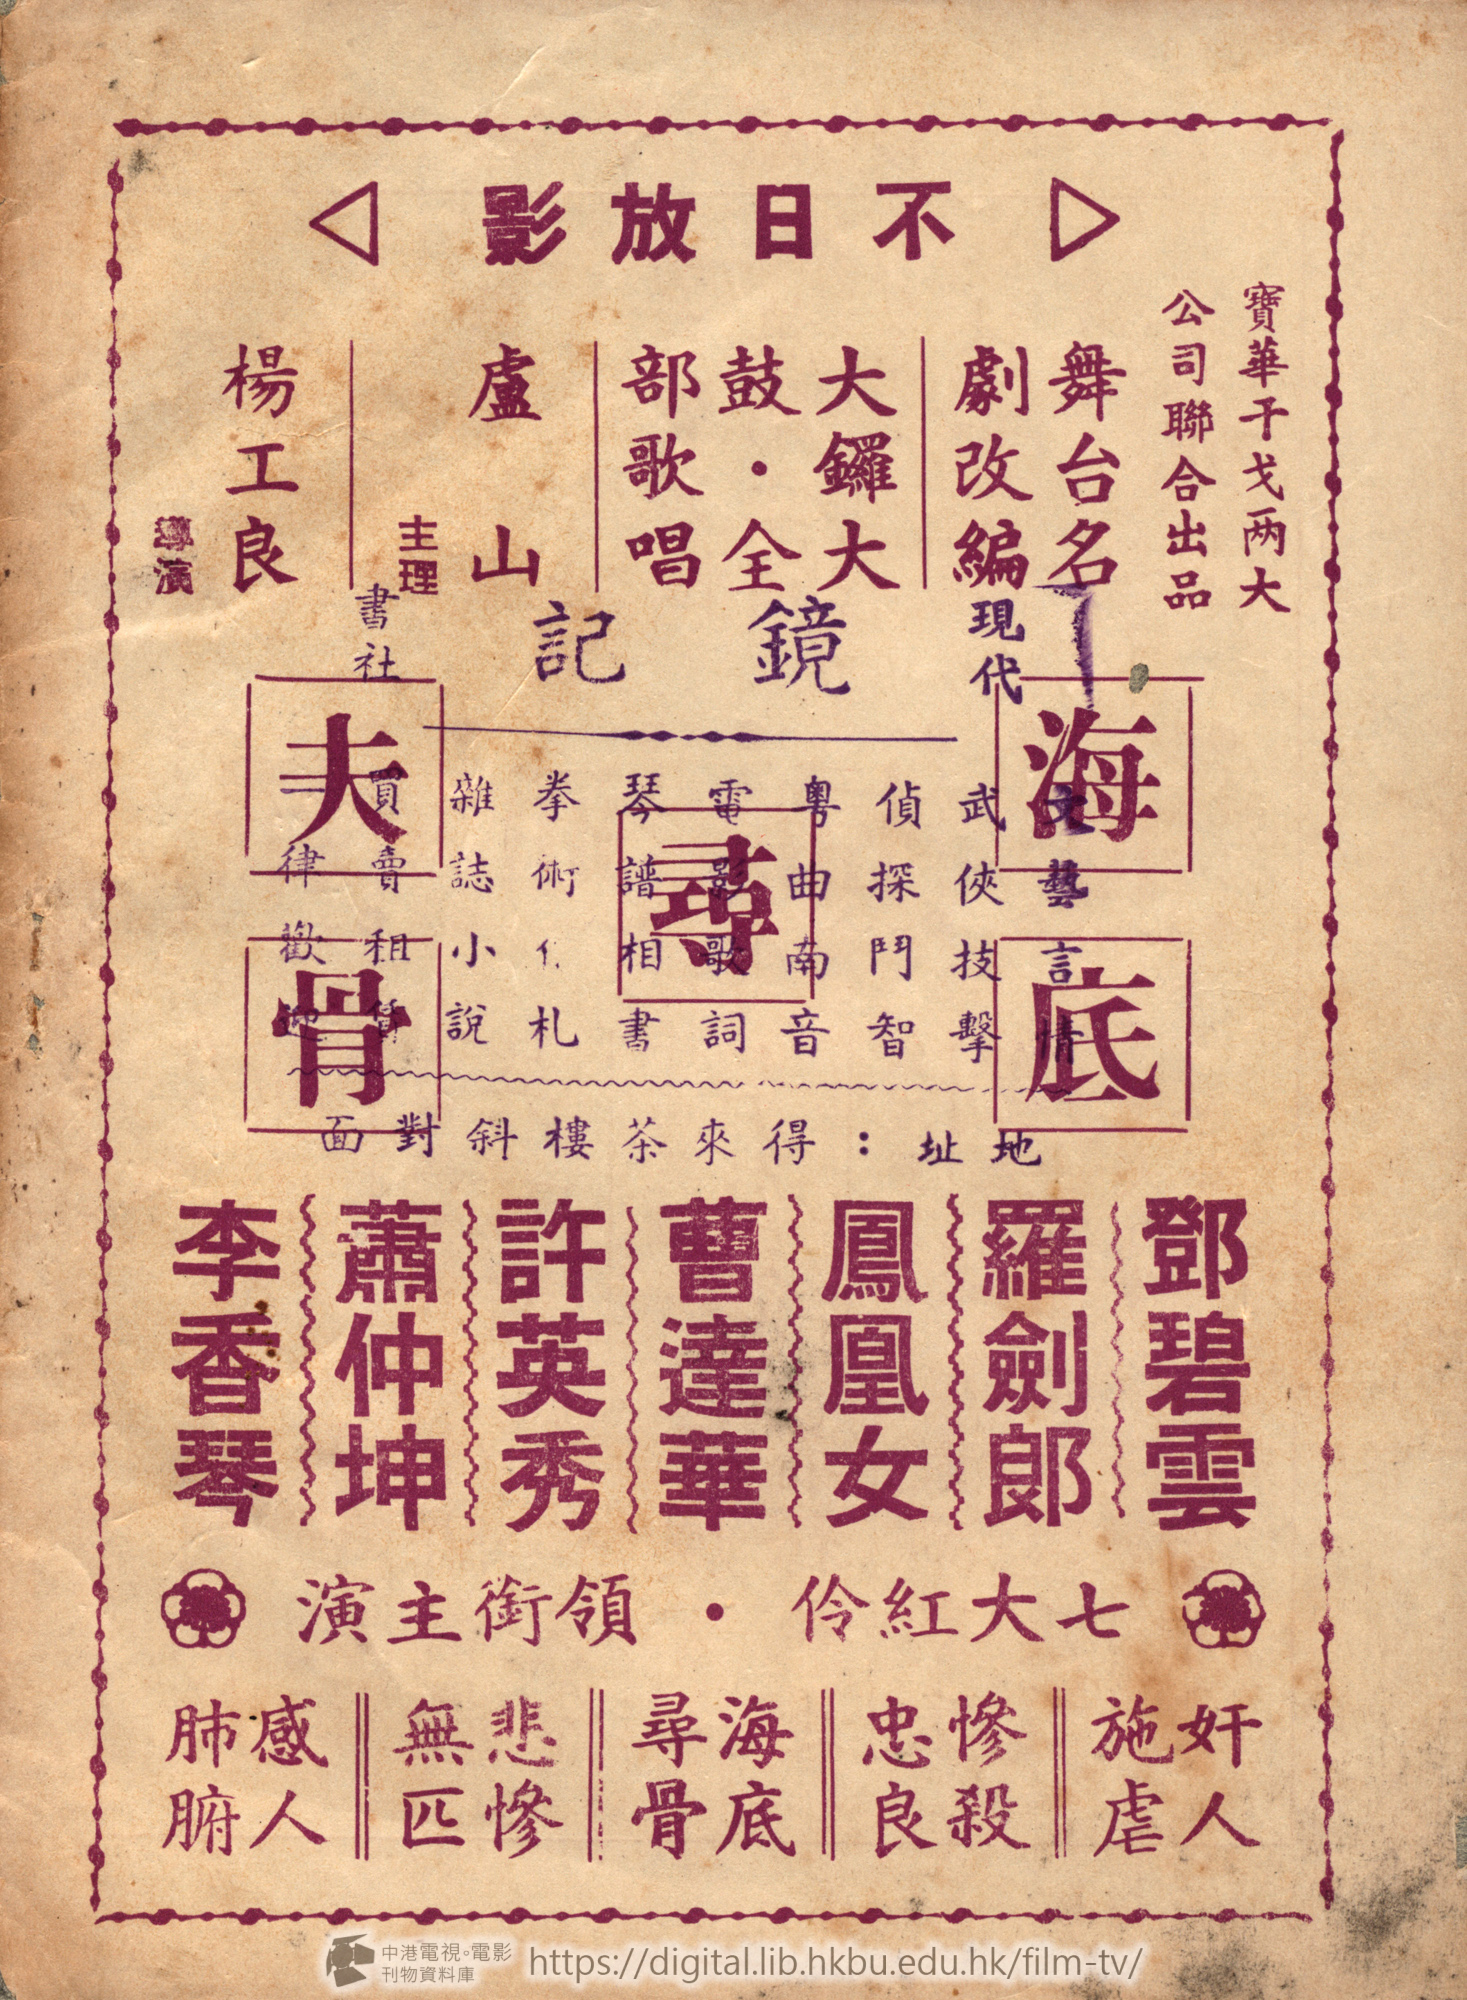 不日放影
寶華干戈两大
公司聯合出品
舞台名
劇改編
大鑼大
鼓·全
部歌唱
盧山
主理
楊工良
導演
海底尋夫骨
鏡記
現代
書社
文藝言情
武俠技擊
偵探鬥智
粵曲南音
電影歌詞
琴譜相書
拳術 札
雜誌小說
買賣租賃
一律歡迎
地址：得來茶樓斜對面
鄧碧雲
羅劍郎
鳳凰女
曹達華
許英秀
蕭仲坤
李香琴
七大紅伶·領銜主演
奸人
施虐
慘殺
忠良
海底
尋骨
悲慘
無匹
感人
肺腑
中港電視。電影
刊物資料庫
https://digital.lib.hkbu.edu.hk/film-tv/